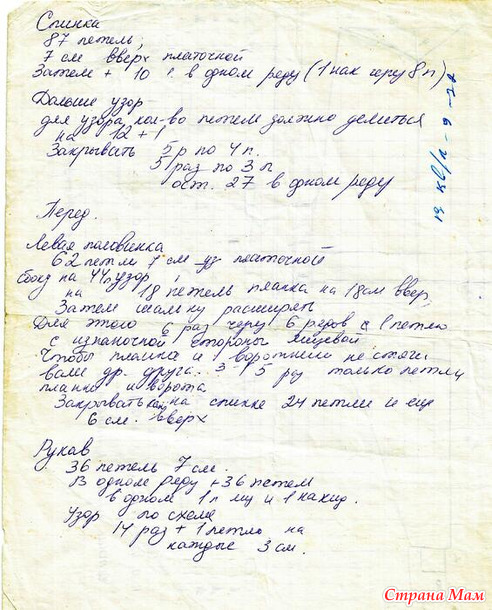 Спинка
87 петель,
7 см вверх платочной
Затем + 10 п. в одном реду (1 нак через 8 п)
Дальше узор
для узора, кол-во петель должно делиться
на 12 + 1
Закрывать 5 р по 4 п.
5 раз по 3 п
ост. 27 в одном реду
Перед.
Левая половинка
62 петли 7 см уз платочной
сбоку на 44п узор,
на 18 петель планка на 18см ввер,
Затем шальку расширять
Для этого 6 раз через 6 редов 1 петлю
с изнаночной стороны лицевой.
Чтобы планка и воротник не стяги
вали др. друга. 3 - 5 ред только петли
планки и ворота
Закрывать как на спинке 24 петли и еще
6 см. вверх
Рукав
36 петель 7 см.
В одном реду +36 петель
в одном 1 п лиц и 1 накид.
Узор по схеме
14 раз + 1 петлю на
каждые 3 см.
Страна Мам